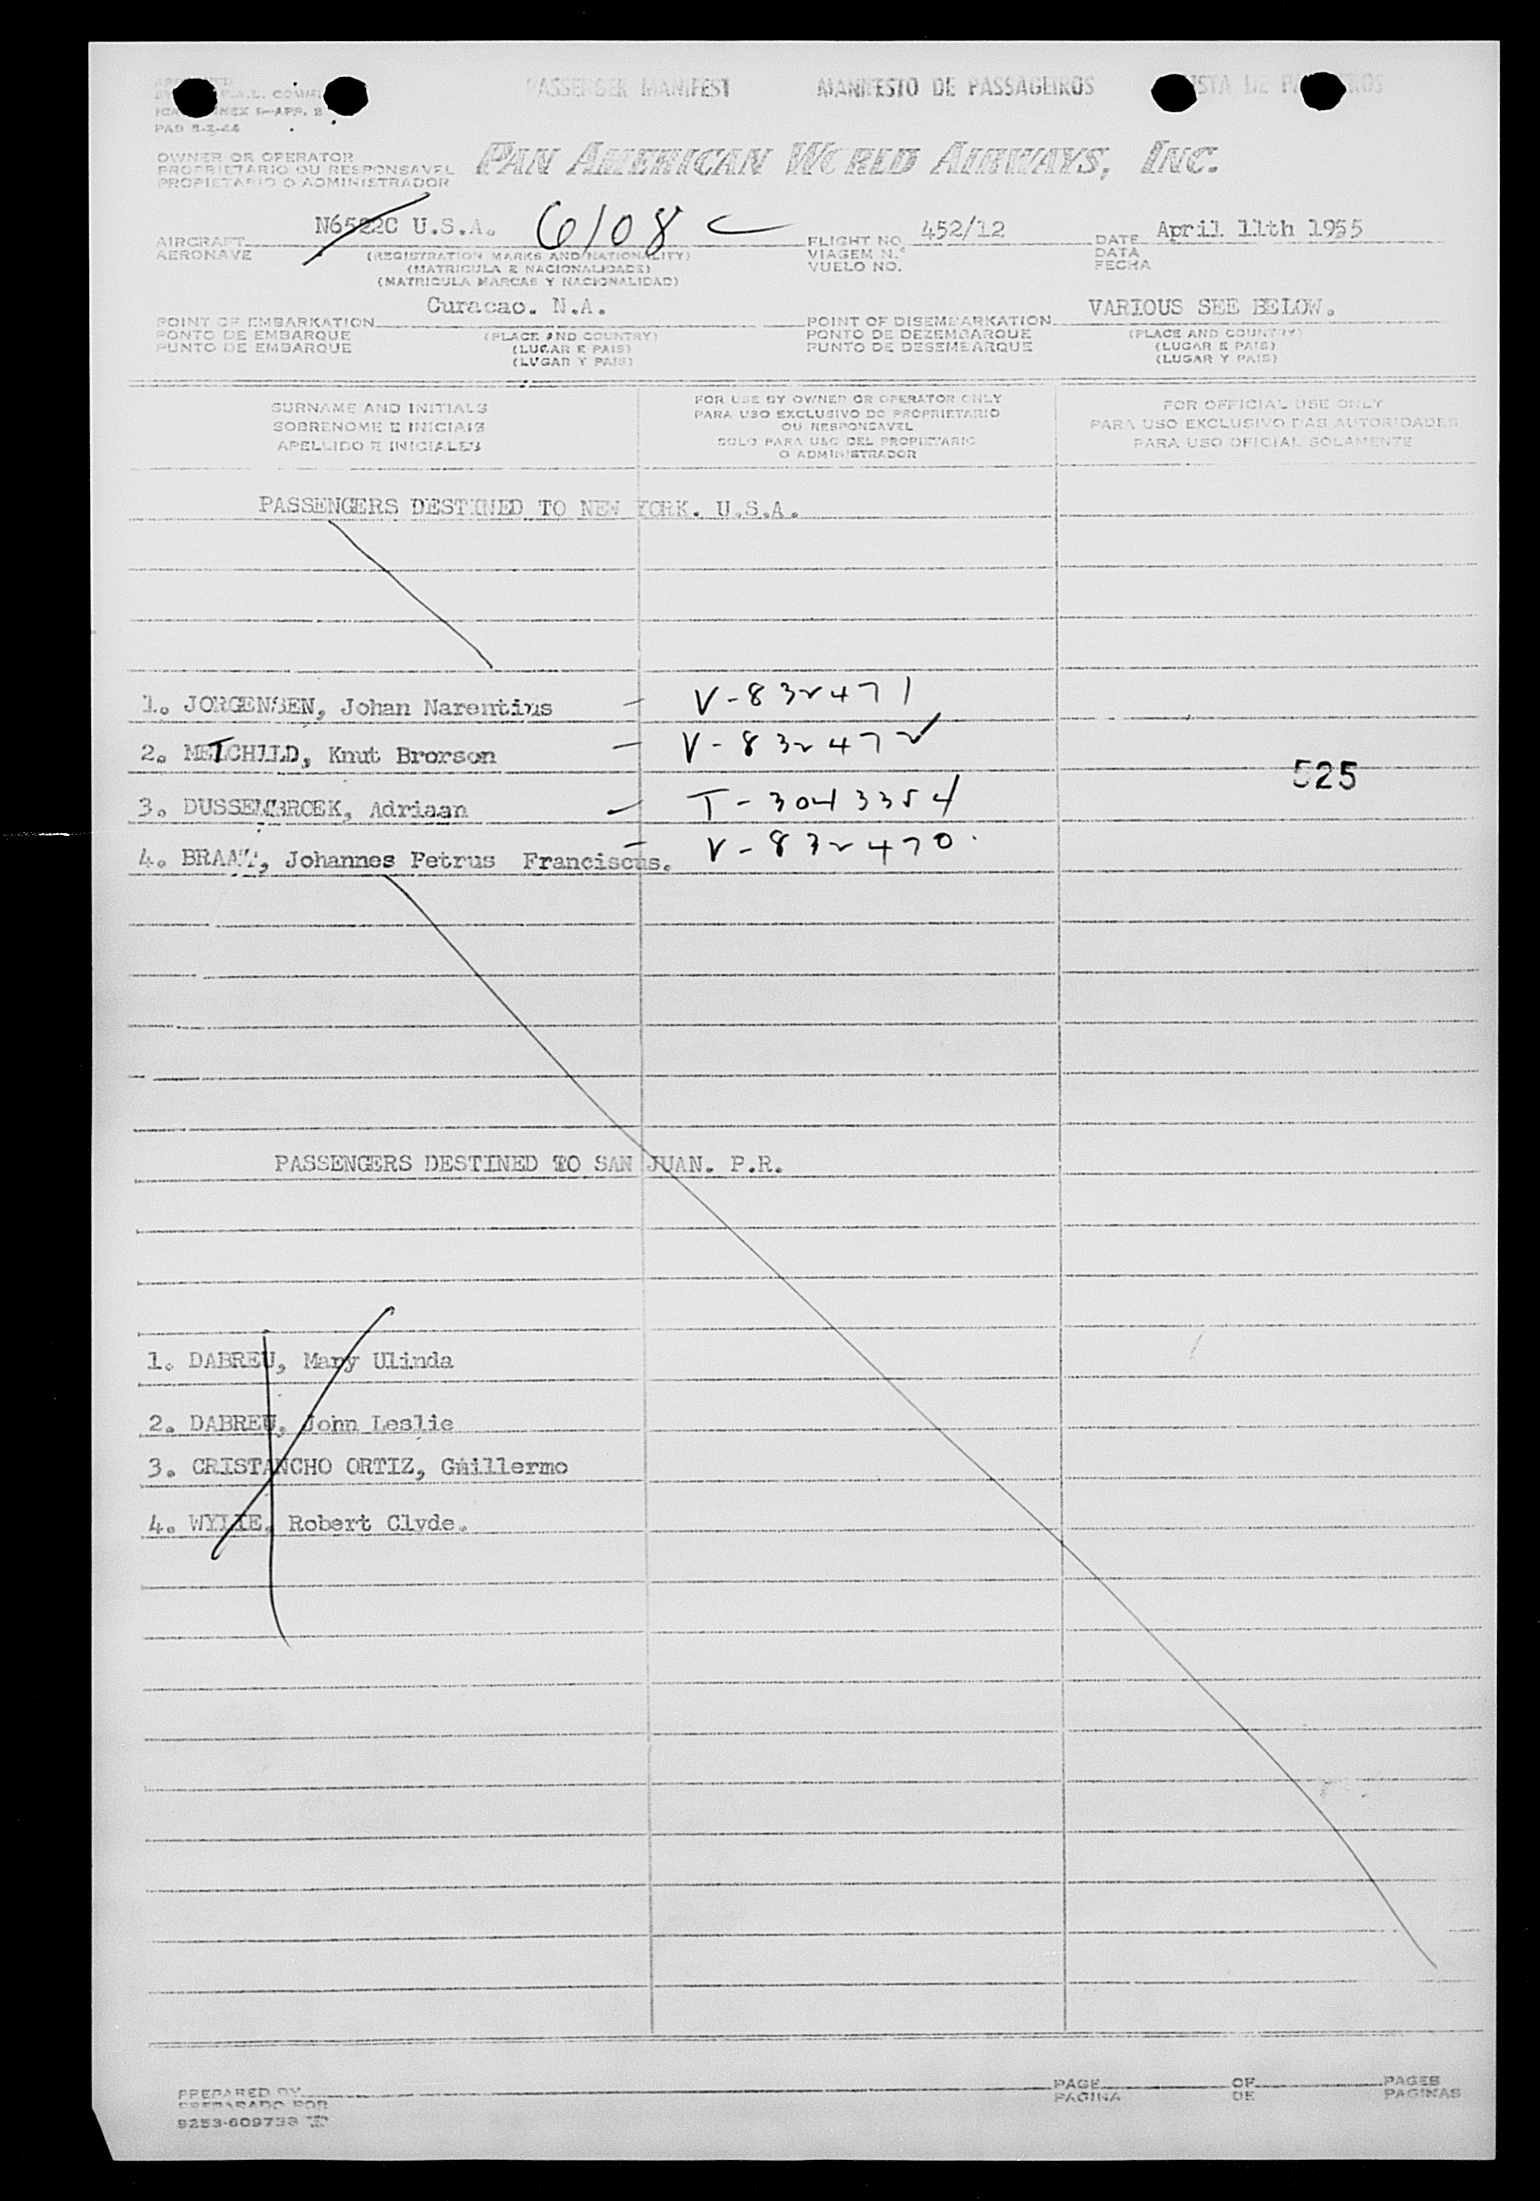 PASSENGER MANIFEST MANIFESTO DE PASSAGEIROS
PAN AMERICAN WORLD AIRWAYS, INC.
OWNER OR OPERATOR
PROPRIETARIO OU RESPONSAVEL
PROPIETARIO O ADMINISTRADOR
N6522C U.S.A. 6108 C
AIRCRAFT
AERONAVE
(REGISTRATION MARKS AND NATIONALITY)
(MATRICULA E NACIONALIDADE)
(MATRICULA MARCAS Y NACIONALIDAD)
FLIGHT NO. 452/12
VIAGEM N.º
VUELO NO.
DATE April 11th 1955
DATA
FECHA
Curacao. N.A.
POINT OF EMBARKATION
PONTO DE EMBARQUE
PUNTO DE EMBARQUE
(PLACE AND COUNTRY)
(LUGAR E PAIS)
(LUGAR Y PAIS)
VARIOUS SEE BELOW.
POINT OF DISEMBARKATION
PONTO DE DEZEMBARQUE
PUNTO DE DESEMBARQUE
(PLACE AND COUNTRY)
(LUGAR E PAIS)
(LUGAR Y PAIS)
SURNAME AND INITIALS
SOBRENOME E INICIAIS
APELLIDO E INICIALES
FOR USE BY OWNER OR OPERATOR ONLY
PARA USO EXCLUSIVO DO PROPRIETARIO
OU RESPONSAVEL
SOLO PARA USO DEL PROPIETARIO
O ADMINISTRADOR
FOR OFFICIAL USE ONLY
PARA USO EXCLUSIVO DAS AUTORIDADES
PARA USO OFICIAL SOLAMENTE
PASSENGERS DESTINED TO NEW YORK. U.S.A.
1. JORGENSEN, Johan Narentius - V-832471
2. METCHILD, Knut Brorson - V-832472
525
3. DUSSEMBROEK, Adriaan - T-3043354
4. BRAAT, Johannes Petrus Franciscus. - V-832470.
PASSENGERS DESTINED TO SAN JUAN. P.R.
1. DABREU, Mary Ulinda
2. DABREU, John Leslie
3. CRISTANCHO ORTIZ, Guillermo
4. WYLIE, Robert Clyde.
PREPARED BY
PREPARADO POR
9253-609733
PAGE OF PAGES
PAGINA DE PAGINAS